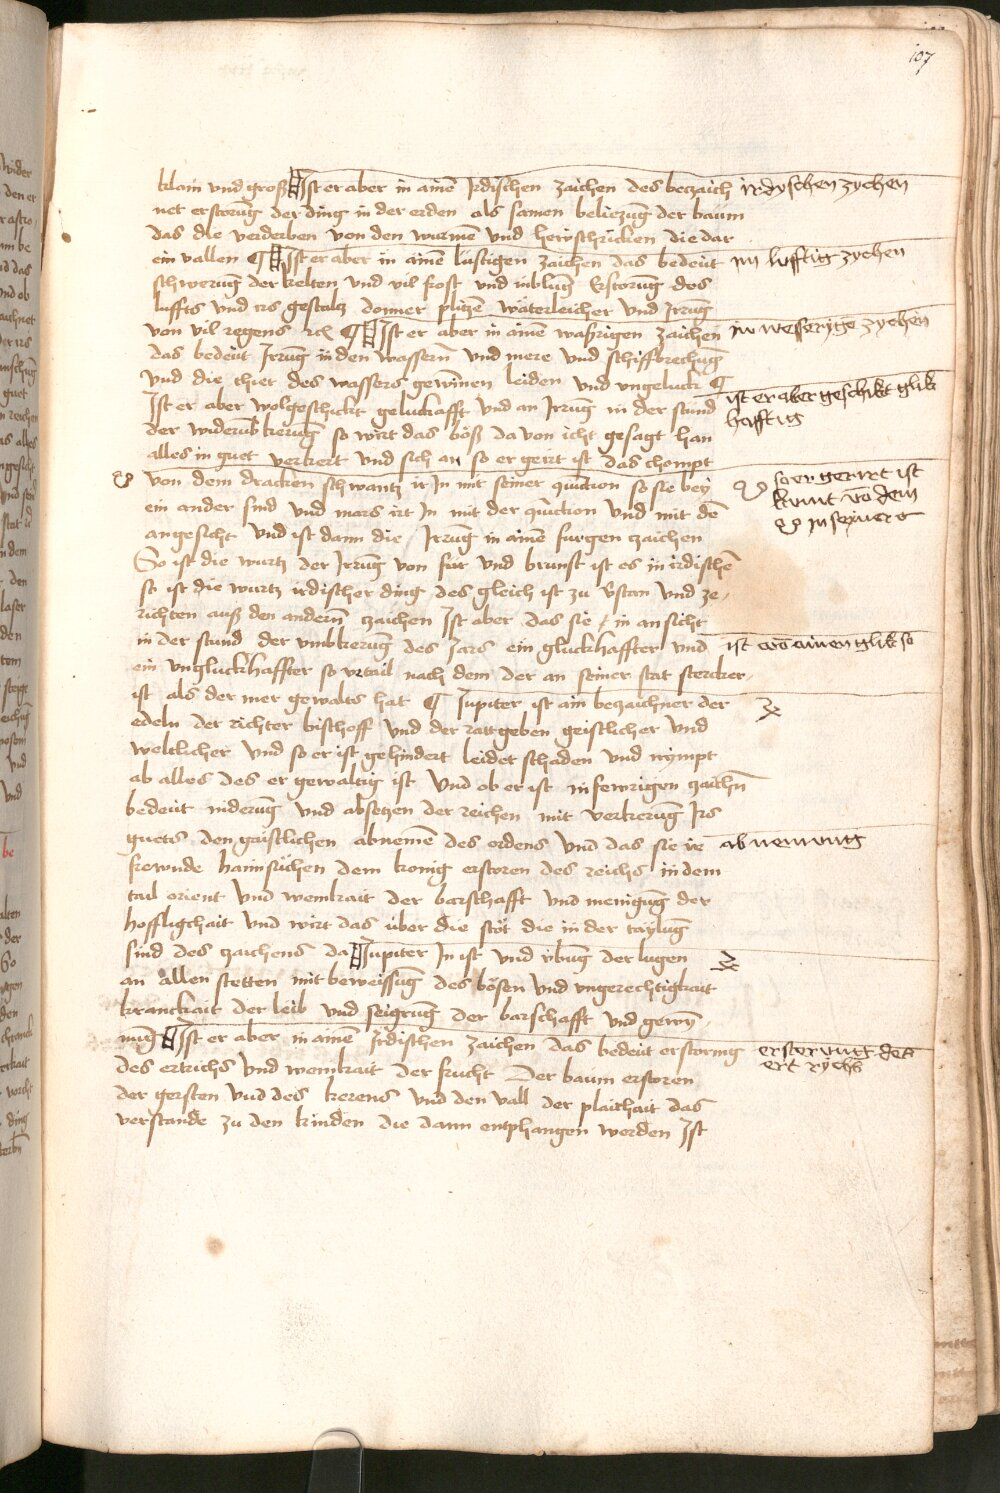 107
klain vnd groß Ist er aber in ainē Irdischen zaichen des bezaich
net erstorūg der ding in der erden als samen beliezūg der bäum
das die verderben von den wurmē vnd hewschricken die dar
ein vallen ¶ Ist er aber in ainē luftigen zaichen das bedeut
schwerūg der kelten vnd vil frost vnd erstorūg des
luffts vnd irs gestaltz donner plitzē wäterleicher vnd Irrūg
von vil regens ¶ Ist er aber in ainē waßrigen zaichen
das bedeut Irrūg in den wassern vnd mere vnd schiffbrechūg
vnd die thier des wassers gewinnen leiden vnd vngeluck ¶
Ist er aber wolgeschickt geluckafft vnd an Irrūg in der stund
der widerūbkerūg so wirt das böß da von icht gesagt han
alles in guet verkert vnd sich an so er geirt ist das chompt
von dem dracken schwantz ir In mit seiner qūction so sie bey
ein ander sind vnd mars irt In mit der qūction vnd mit dē
angesicht vnd ist dann die Irrūg in ainē furgen zaichen
So ist die wurtz der Irrūg von für vnd brunst ist es in irdischē
so ist die wurtz irdischer ding des gleich ist zu v̄stan vnd ze
richten auß den andern zaichen Ist aber das sie in ansicht
in der stund der vmbkerūg des Jars ein gluckhaffter vnd
ein vngluckhaffter so vrtail nach dem der an seiner stat stercker
ist als der mer gewalts hat ¶ Jupiter ist ain bezaichner der
edeln der richter bischoff vnd der rattgeben geistlicher vnd
weltlicher vnd so er ist gehindert leidet schaden vnd nympt
ab alles des er gewaltig ist vnd ob er ist in fewrigen zaichn̄
bedeut niderūg vnd absetzen der reichen mit verkerūg Irs
guets den gaistlichen abnemē des ordens vnd das sie ir
frewnde haimsüchen dem konig erstoren des reichs in dem
tail orient vnd wenikait der barschafft vnd menigūg der
hoffligchait vnd wirt das über die stöt die in der taylūg
sind des zaichens da Jupiter In ist vnd übūg der lugen
an allen stetten mit beweissūg des bösen vnd vngerechtigkait
kranckait der leib vnd seigrūg der barschafft vnd gewȳ
nūg Ist er aber in ainē Irdischen zaichen das bedeut erstorūng
des ertrichs vnd wenikait der frucht Der bäum erstoren
der gersten vnd des kerens vnd den vall der plaichait das
verstande zu den kinden die dann entphangen werden Ist
irdyschen zychen
Im lufftig zychen
In wesseryge zychen
ist er aber geschikt glik
hafftig
☋ so er geirrt ist
kumt vō dem
☋ In seiner
ist aber ainen glik so
♃
abnemung
♃
erstorung des
ertrychs